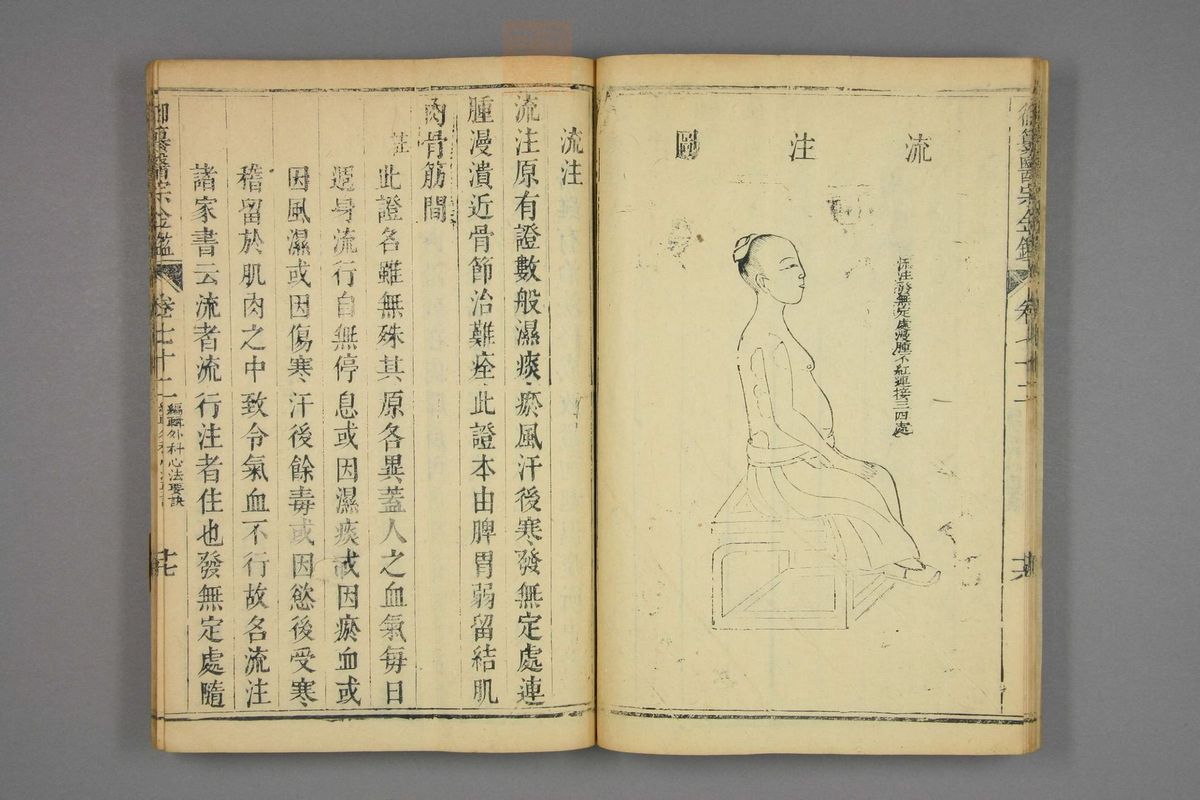 流注圖
流注發無定處漫腫不紅連接三四處
御纂醫宗金鑑 卷七十二
流注
流注原有證數般濕痰瘀風汗後寒發無定處連
腫漫潰近骨節治難痊此證本由脾胃弱留結肌
肉骨筋間
註
此證名雖無殊其原各異蓋人之血氣每日
週身流行自無停息或因濕痰或因瘀血或
因風濕或因傷寒汗後餘毒或因慾後受寒
稽留於肌肉之中致令氣血不行故名流注
諸家書云流者流行注者住也發無定處隨
御纂醫宗金鑑 卷七十二 編輯外科心法要訣